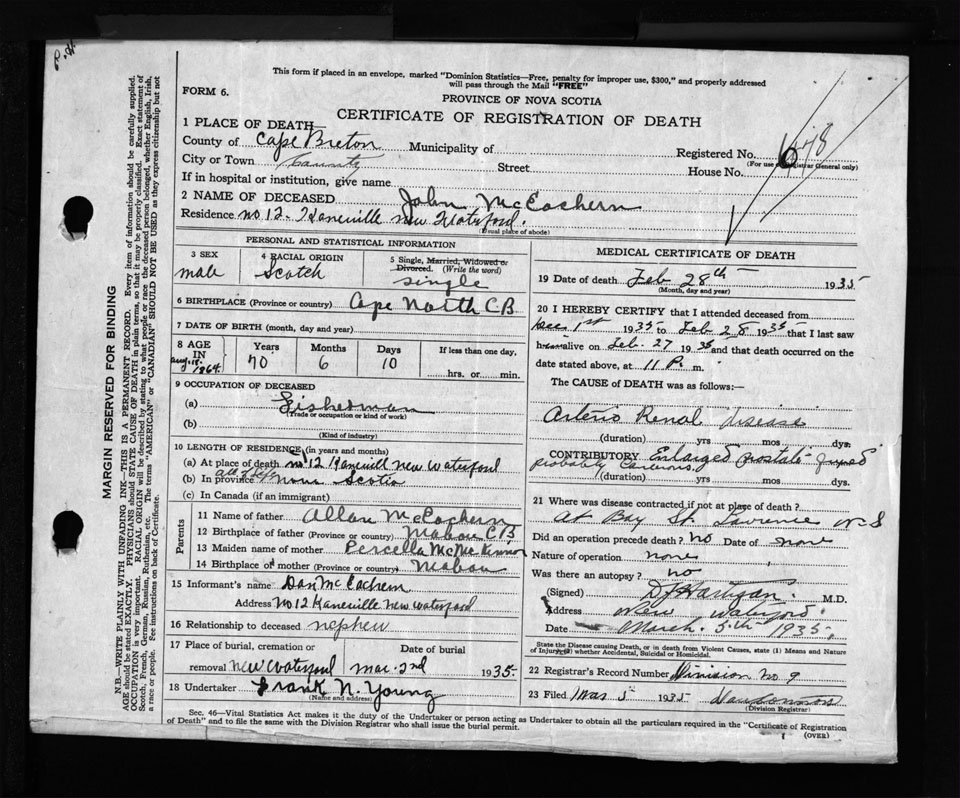 This form if placed in an envelope, marked "Dominion Statistics—Free, penalty for improper use, $300," and properly addressed
will pass through the Mail "FREE"
FORM 6.
PROVINCE OF NOVA SCOTIA
CERTIFICATE OF REGISTRATION OF DEATH
1 PLACE OF DEATH
County of Cape Breton Municipality of Registered No.
(For use of Registrar General only)
City or Town County Street House No.
If in hospital or institution, give name
2 NAME OF DECEASED John McEachern
Residence No 12 - Kaneville New Waterford.
(Usual place of abode)
PERSONAL AND STATISTICAL INFORMATION
3 SEX male
4 RACIAL ORIGIN Scotch
5 Single, Married, Widowed or Divorced. (Write the word) single
6 BIRTHPLACE (Province or country) Cape North C B
7 DATE OF BIRTH (month, day and year)
8 AGE IN Years Months Days If less than one day,
Aug. 18. 1864 70 6 10 hrs. or min.
9 OCCUPATION OF DECEASED
(a) Fisherman
(Trade or occupation or kind of work)
(b)
(Kind of industry)
10 LENGTH OF RESIDENCE (in years and months)
(a) At place of death No 12 Kaneville New Waterford
(b) In province all of life Nova Scotia
(c) In Canada (if an immigrant)
Parents
11 Name of father Allan McEachern
12 Birthplace of father (Province or country) Mabou C B.
13 Maiden name of mother Percella McKinnon
14 Birthplace of mother (Province or country) Mabou
15 Informant's name Dan McEachern
Address No 12 Kaneville New Waterford
16 Relationship to deceased nephew
17 Place of burial, cremation or removal New Waterford
Date of burial Mar. 2nd 1935.
18 Undertaker Frank N. Young
(Name and address)
MEDICAL CERTIFICATE OF DEATH
19 Date of death Feb 28th 1935
(Month, day and year)
20 I HEREBY CERTIFY that I attended deceased from
Dec 1st 1935 to Feb 28 1935 that I last saw
him alive on Feb. 27 1935 and that death occurred on the
date stated above, at 11 P. m.
The CAUSE of DEATH was as follows:—
Arterio Renal disease
(duration) yrs mos dys.
CONTRIBUTORY Enlarged prostate
probably
(duration) yrs mos dys.
21 Where was disease contracted if not at place of death?
At Bay St. Lawrence N S
Did an operation precede death? No Date of none
Nature of operation none
Was there an autopsy? no
(Signed) D J Hartigan. M.D.
Address New Waterford.
Date March. 5th 1935.
State the Disease causing Death, or in death from Violent Causes, state (1) Means and Nature of Injury, (2) whether Accidental, Suicidal or Homicidal.
22 Registrar's Record Number Division No 9
23 Filed Mar 5 1935
(Division Registrar)
Sec. 46—Vital Statistics Act makes it the duty of the Undertaker or person acting as Undertaker to obtain all the particulars required in the "Certificate of Registration
of Death" and to file the same with the Division Registrar who shall issue the burial permit.
(OVER)
MARGIN RESERVED FOR BINDING
N.B.—WRITE PLAINLY WITH UNFADING INK—THIS IS A PERMANENT RECORD. Every item of information should be carefully supplied.
AGE should be stated EXACTLY. PHYSICIANS should STATE CAUSE OF DEATH in plain terms, so that it may be properly classified. Exact statement of
OCCUPATION is very important. RACIAL ORIGIN will be described by stating to what people or race the deceased person belonged, whether English, Irish,
Scotch, French, German, Russian, Ruthenian, etc. The terms "AMERICAN" or "CANADIAN" SHOULD NOT BE USED as they express citizenship but not
a race or people. See instructions on back of Certificate.